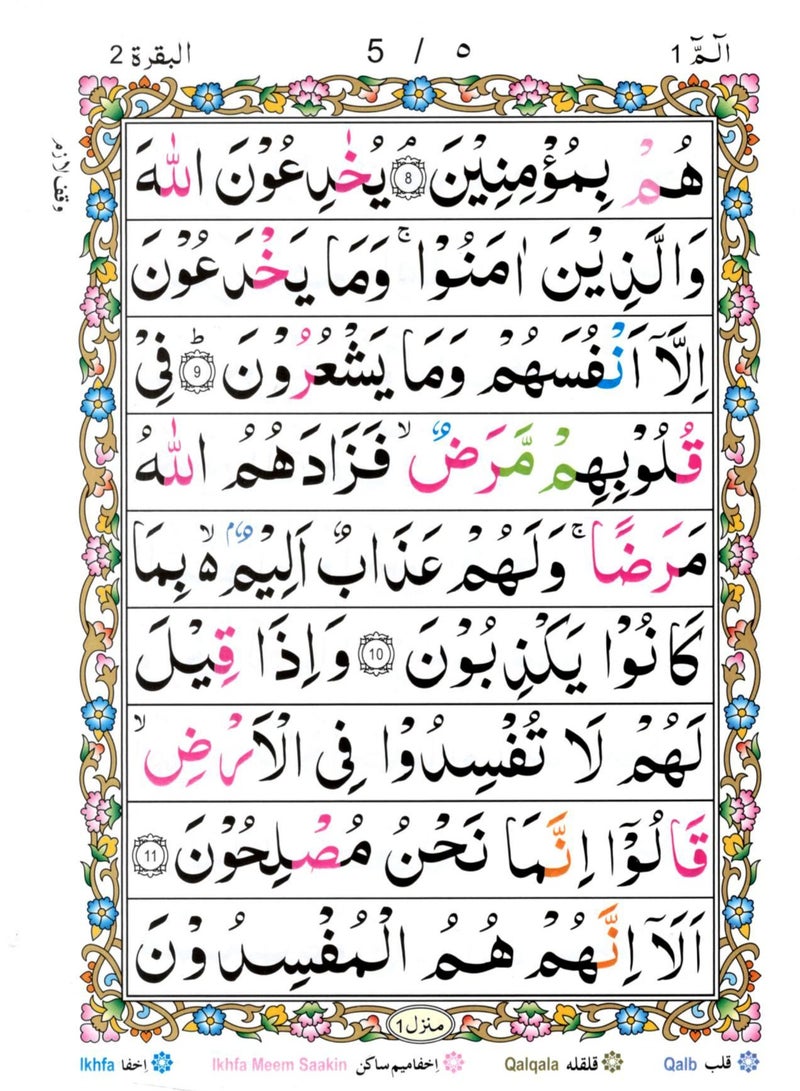 الٓمّٓ 1
٥ / 5
البقرة 2
وقف لازم
هُمْ بِمُؤْمِنِيْنَ ۘ 8 يُخٰدِعُوْنَ اللّٰهَ
وَالَّذِيْنَ اٰمَنُوْا ۚ وَمَا يَخْدَعُوْنَ
اِلَّآ اَنْفُسَهُمْ وَمَا يَشْعُرُوْنَ ؕ 9 فِيْ
قُلُوْبِهِمْ مَّرَضٌ ۙ فَزَادَهُمُ اللّٰهُ
مَرَضًا ۚ وَلَهُمْ عَذَابٌ اَلِيْمٌۢ ۙ۵ بِمَا
كَانُوْا يَكْذِبُوْنَ 10 وَاِذَا قِيْلَ
لَهُمْ لَا تُفْسِدُوْا فِى الْاَرْضِ ۙ
قَالُوْٓا اِنَّمَا نَحْنُ مُصْلِحُوْنَ 11
اَلَآ اِنَّهُمْ هُمُ الْمُفْسِدُوْنَ
منزل 1
Ikhfa اِخفا Ikhfa Meem Saakin اِخفامیم ساکن Qalqala قلقله Qalb قلب